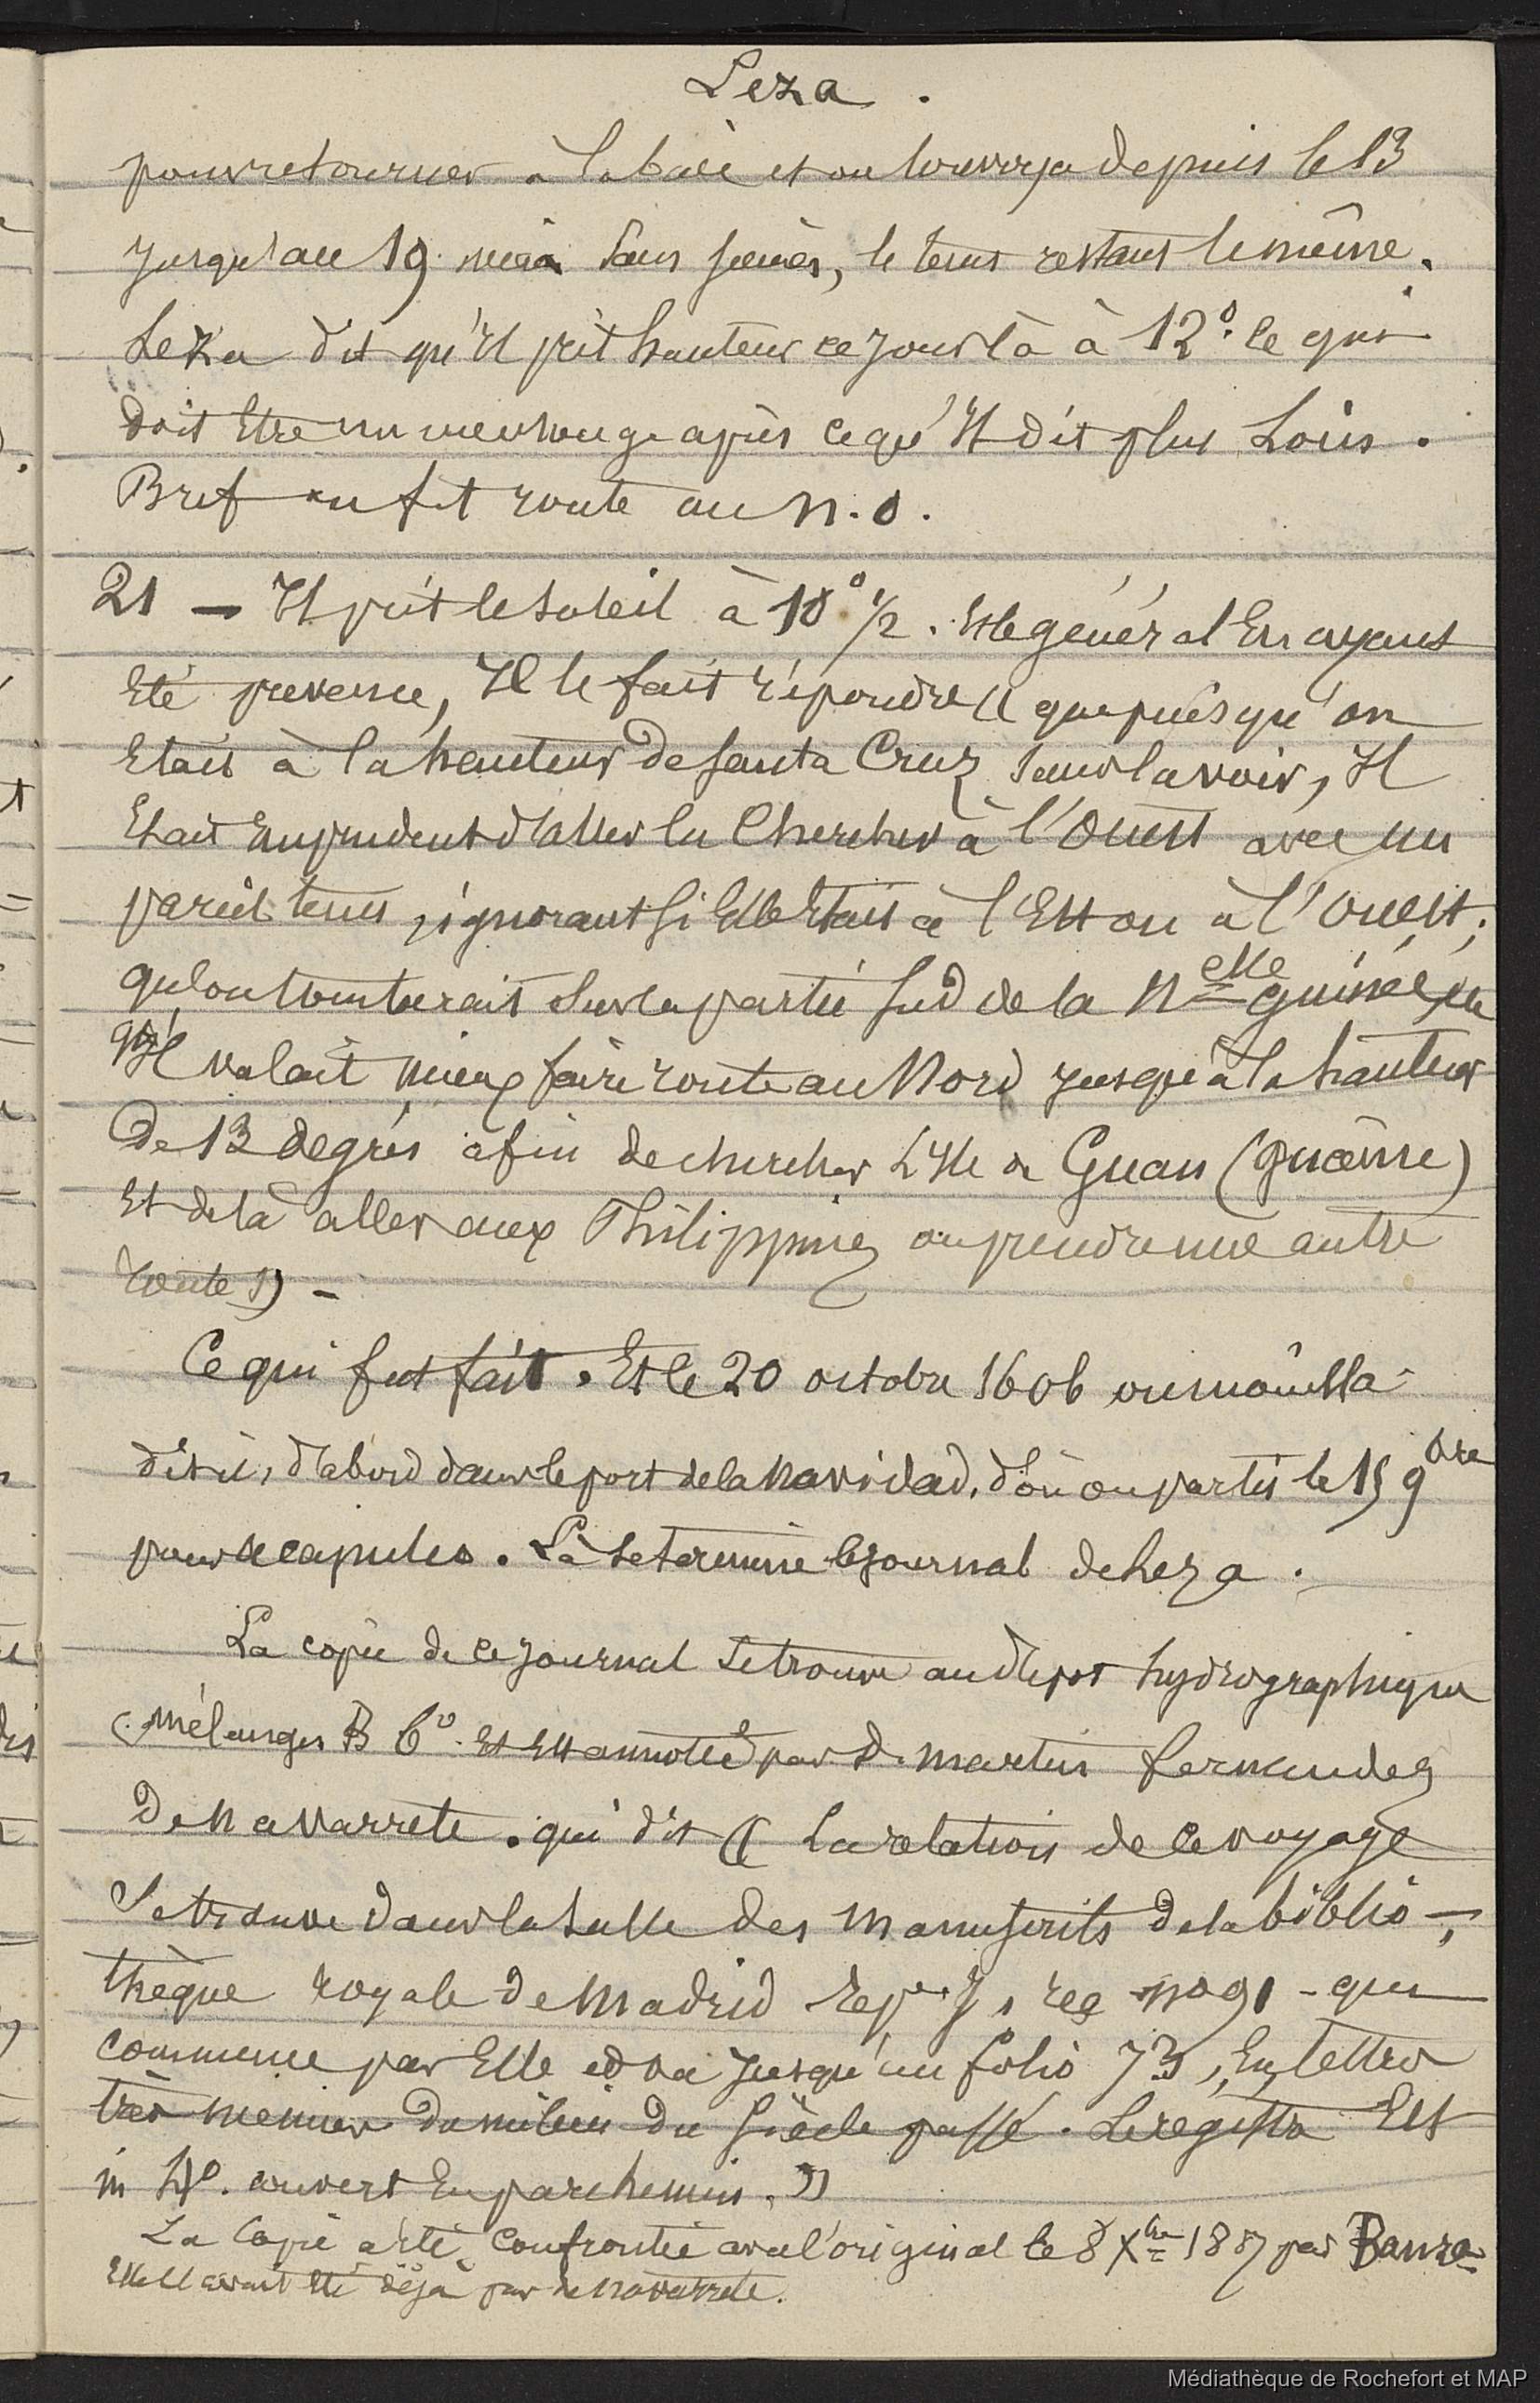 Leza.
pour retourner à la baie et on louvoya depuis le 13
jusqu'au 19. mais sans succès, le tems restant le même.
Leza dit qu'il prit hauteur ce jour là à 12°. ce qui
doit être un mensonge après ce qu'il dit plus loin.
Bref on fit route au N.O.
21 — Il prit le soleil à 10° 1/2. Et le général en ayant
été prevenu, Il le fait répondre « que puisqu'on
était à la hauteur de Santa Cruz sans la voir, Il
était imprudent d'aller la chercher à l'Ouest avec un
pareil tems, ignorant si elle était à l'Est ou à l'Ouest;
qu'on tomberait sur la partie sud de la Nelle guinée, et
qu'Il valait mieux faire route au Nord jusqu'à la hauteur
de 13 degrés afin de chercher L'Ile de Guan (guame)
Et de là aller aux Philippines ou prendre une autre
route » –
Ce qui fut fait. Et le 20 octobre 1606 on mouilla
dit il, d'abord dans le port de la Navidad, d'où on partit le 15 9bre
pour acapulco. Là se termine le journal de Leza.
La copie de ce journal se trouve au dépot hydrographique
(mélanges B 6°. Et est annotée par D. martin fernandez
de Navarrete. qui dit « La relation de ce voyage
se trouve dans la salle des manuscrits de la biblio-
thèque royale de Madrid J, reg no 91 - qui
commence par Elle et va jusqu'au folio 73, En lettre
très menue du milieu du siècle passé. Le registre Est
in 4°. couvert en parchemin. »
La copie a été confrontée avec l'original le 8 Xbre 18 par Bauza
Elle l'avait été déjà par de Navarrete.
Médiathèque de Rochefort et MAP